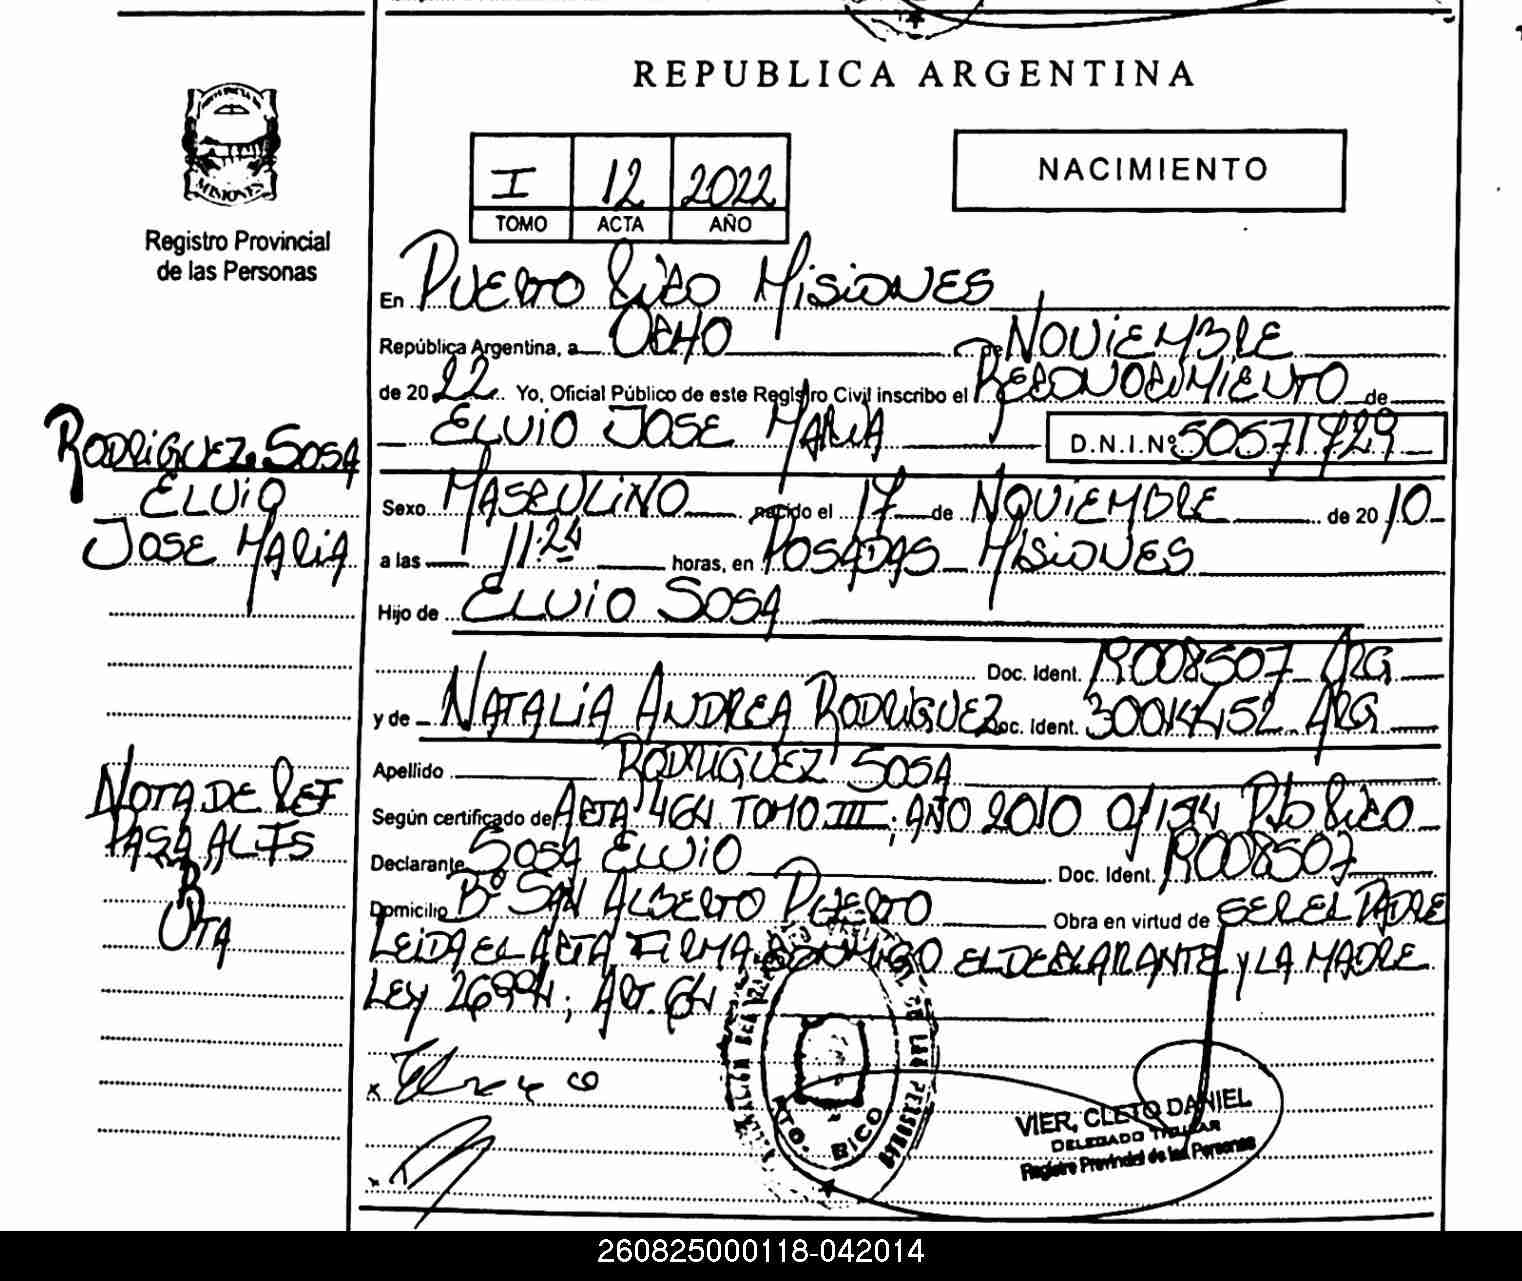 REPUBLICA ARGENTINA
PROVINCIA DE
MISIONES
Registro Provincial
de las Personas
I 12 2022
TOMO ACTA AÑO
NACIMIENTO
En PUERTO RICO MISIONES
República Argentina, a OCHO de NOVIEMBRE
de 2022 Yo, Oficial Público de este Registro Civil inscribo el RECONOCIMIENTO de
ELVIO JOSE MARIA D.N.I.Nº 50571729
RODRIGUEZ SOSA
ELVIO
JOSE MARIA
Sexo MASCULINO nacido el 17 de NOVIEMBRE de 2010
a las 11:24 horas, en POSADAS MISIONES
Hijo de ELVIO SOSA
Doc. Ident. R008507 ARG
y de NATALIA ANDREA RODRIGUEZ Doc. Ident. 30014452 ARG
Apellido RODRIGUEZ SOSA
Según certificado de ACTA 464 TOMO III; AÑO 2010 Of 154 Pto RICO
Declarante SOSA ELVIO Doc. Ident. R008507
Domicilio Bº SAN ALBERTO PUERTO Obra en virtud de SER EL PADRE
LEIDA EL ACTA FIRMA CONMIGO EL DECLARANTE Y LA MADRE
LEY 26994; ART. 64
NOTA DE REF
PASA AL Fs
PTO. RICO
VIER, CLETO DANIEL
DELEGADO TITULAR
Registro Provincial de las Personas
260825000118-042014